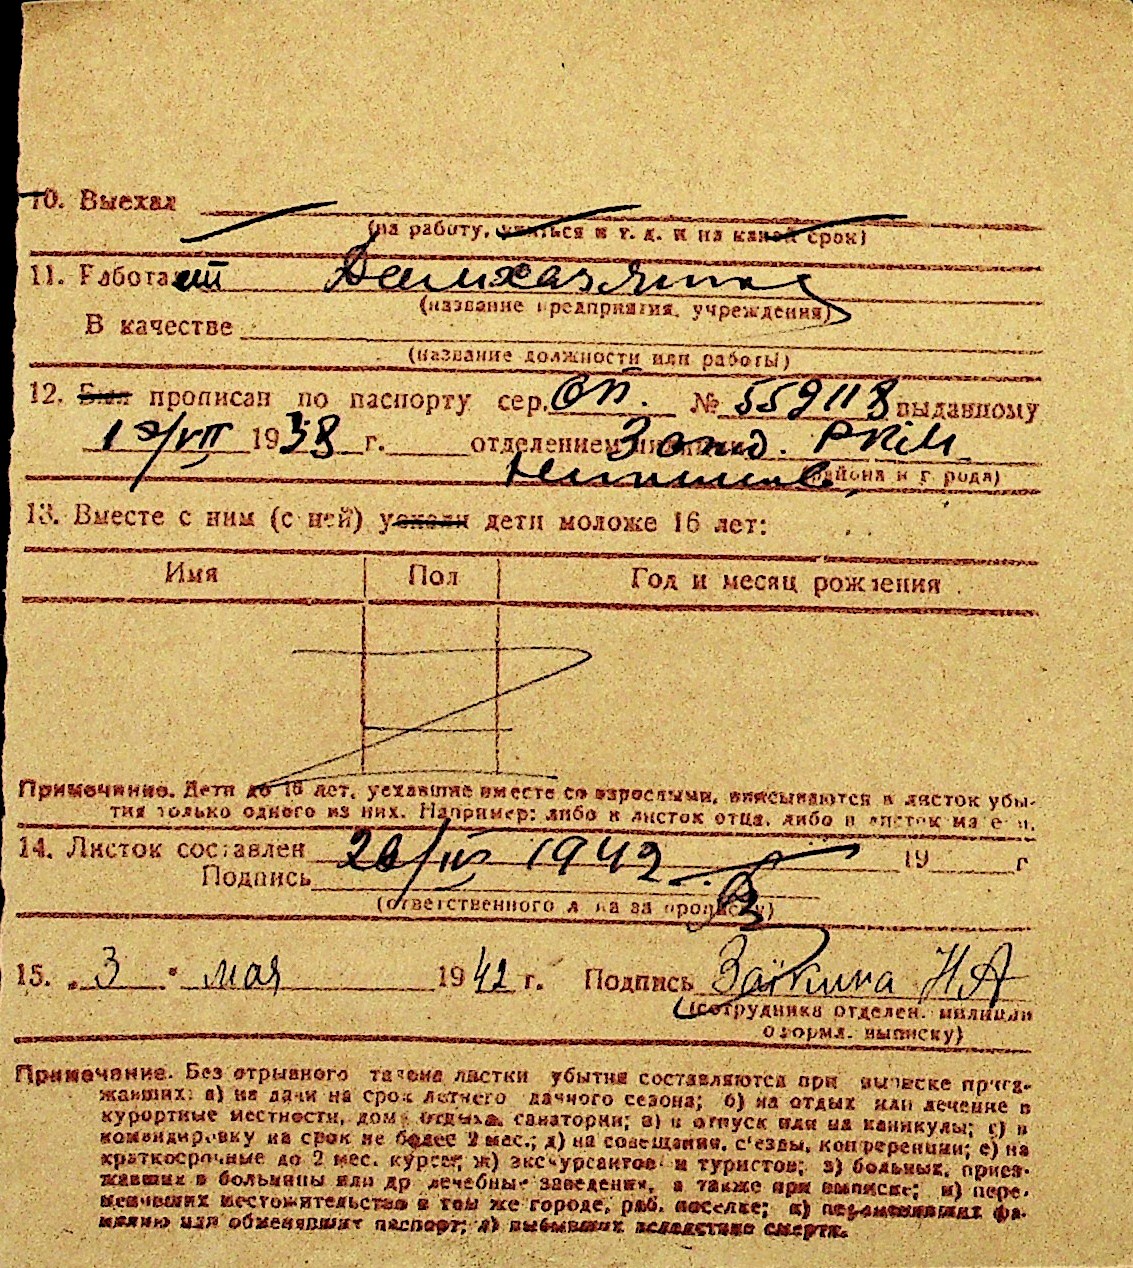 10. Выехал
(на работу, учиться и т. д. и на какой срок)
11. Работает Домхозяйка
(название предприятия, учреждения)
В качестве
(название должности или работы)
12. Был прописан по паспорту сер. ОП. № 559118 выданному
19/VII 1938 г. отделением милиции 3 отд. РКМ
(района и города)
13. Вместе с ним (с ней) уехали дети моложе 16 лет:
Имя Пол Год и месяц рождения
Примечание. Дети до 16 лет, уехавшие вместе со взрослыми, вписываются в листок убы-
тия только одного из них. Например: либо в листок отца, либо в листок матери.
14. Листок составлен 20/IV 1942 19 г
Подпись
(ответственного лица за прописку)
15. „3 " мая 1942 г. Подпись Зайкина Н А
(сотрудника отделен. милиции
оформл. выписку)
Примечание. Без отрывного талона листки убытия составляются при выписке приез-
жавших: а) на дачи на срок летнего дачного сезона; б) на отдых или лечение в
курортные местности, дома отдыха, санатории; в) в отпуск или на каникулы; г) в
командировку на срок не более 2 мес.; д) на совещания, с'езды, конференции; е) на
краткосрочные до 2 мес. курсы; ж) экскурсантов и туристов; з) больных, приез-
жавших в больницы или др лечебные заведения, а также при выписке; и) пере-
менивших местожительство в том же городе, раб. поселке; к) переменивших фа-
милию или обменявших паспорт; л) выбывших вследствие смерти.